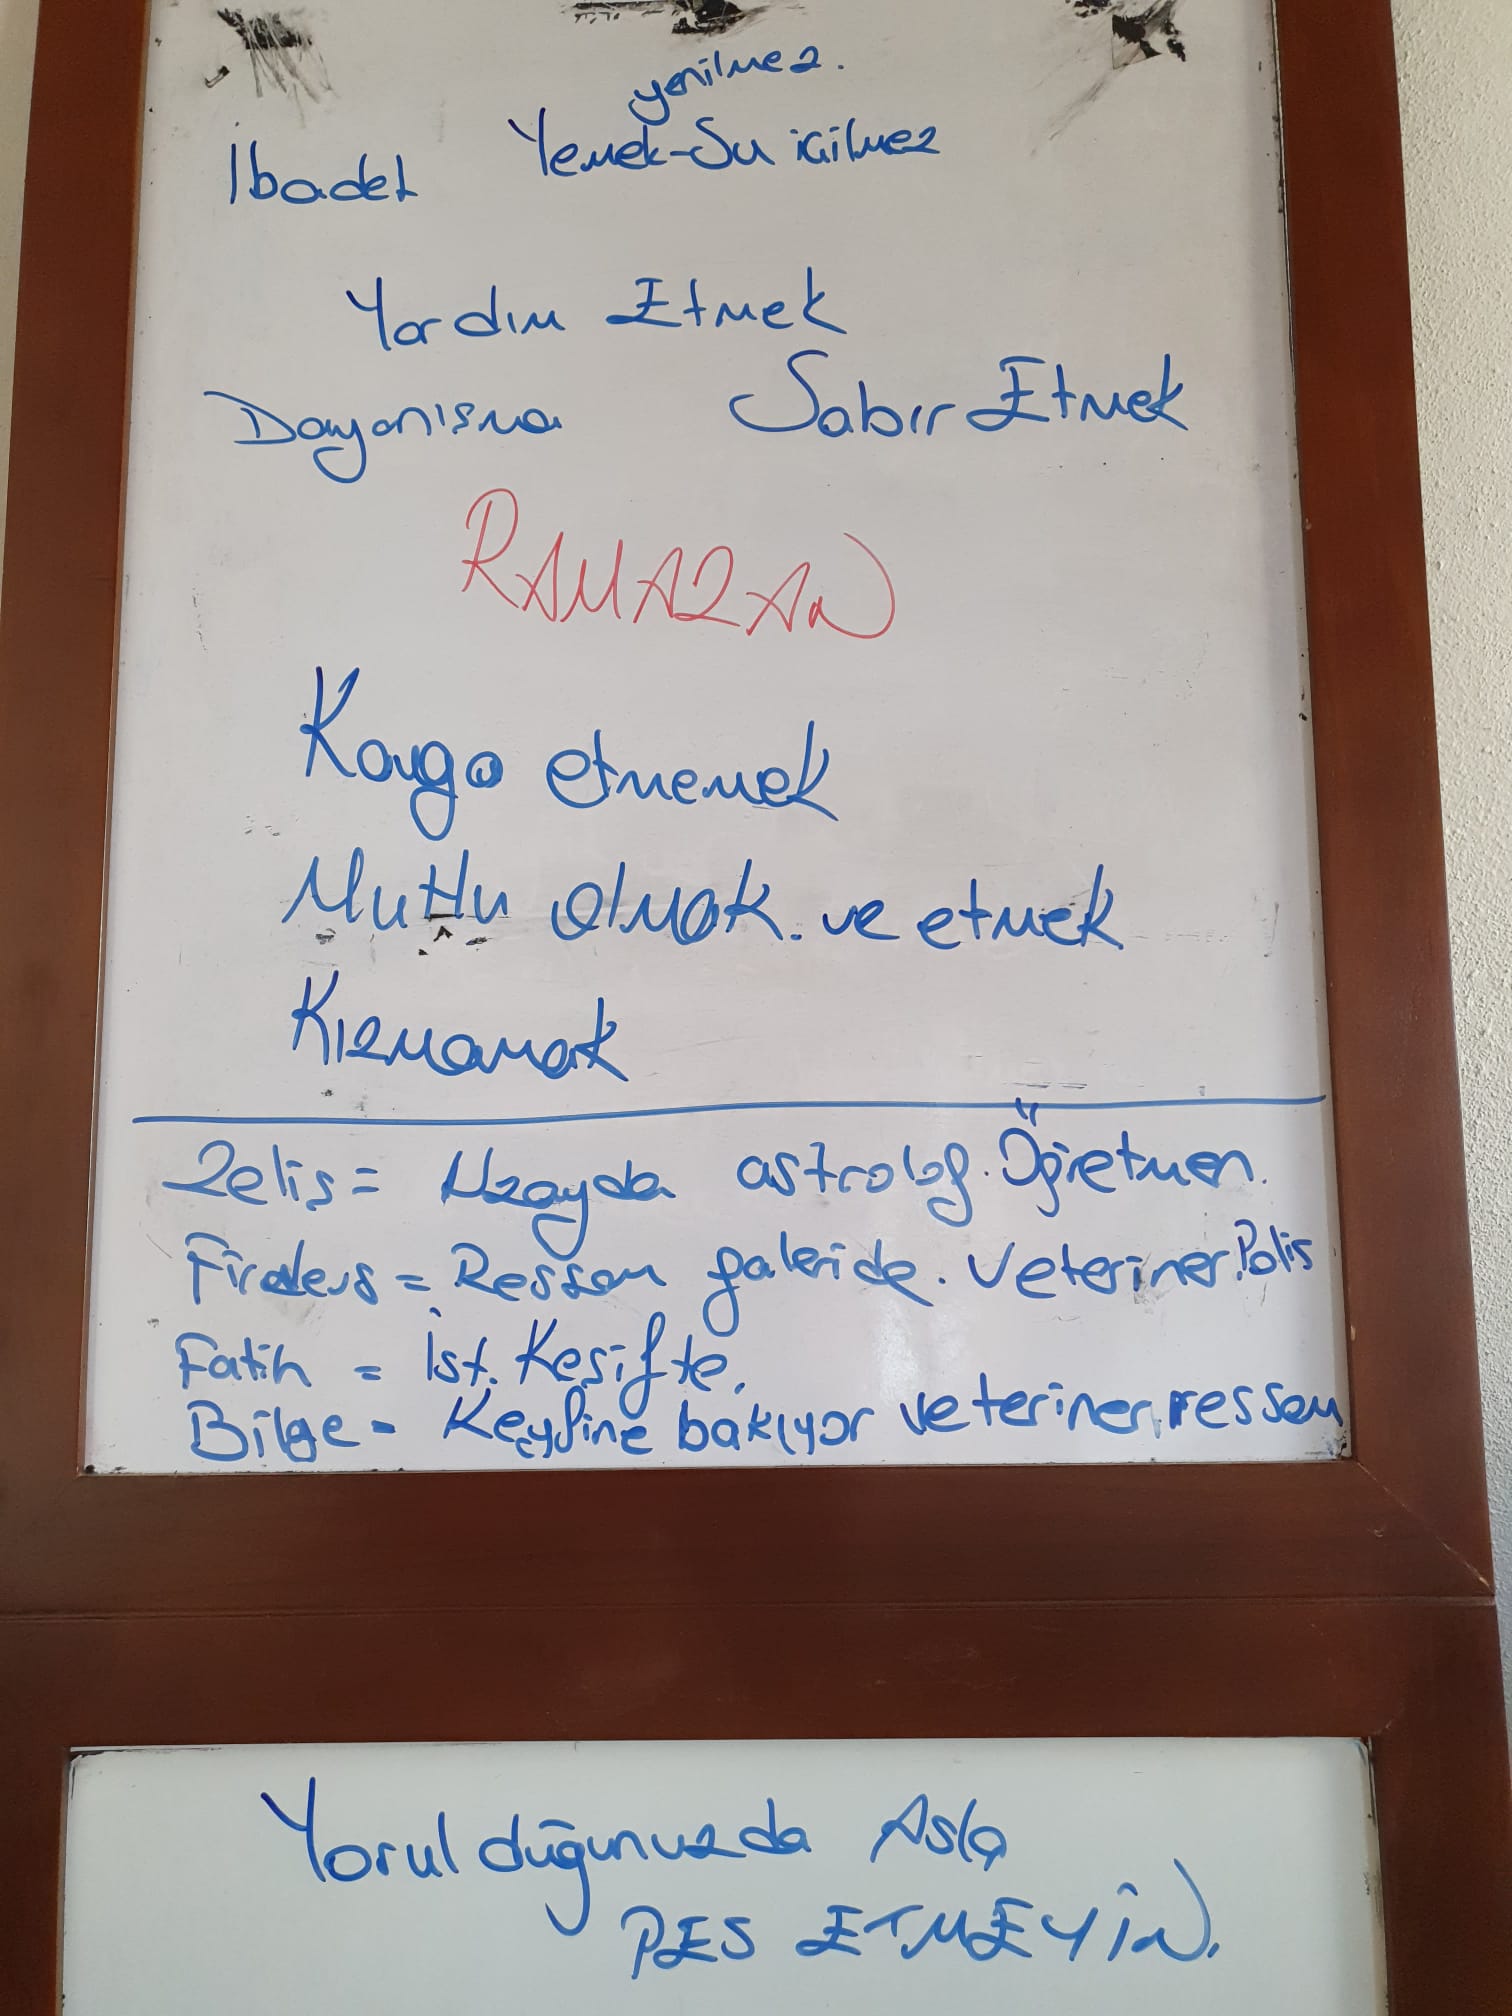 yenilmez.
İbadet Yemek-Su içilmez
Yardım Etmek
Dayanışma Sabır Etmek
RAMAZAN
Kavga etmemek
Mutlu olmak. ve etmek
Kızmamak
Zeliş = Uzayda astrolog. Öğretmen.
Firdevs = Ressam galeride. Veteriner. Polis
Fatih = İst. Keşifte.
Bilge = Keyfine bakıyor veteriner, ressam
Yorulduğunuzda Asla
PES ETMEYİN.